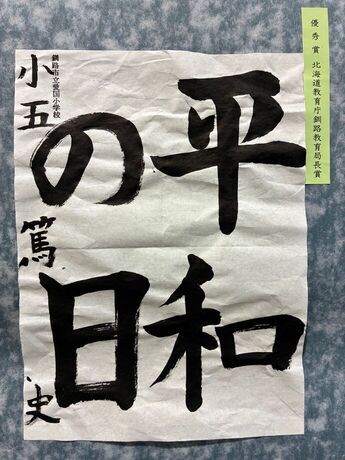 優秀賞 北海道教育庁釧路教育局長賞
平和
の日
釧路市立愛国小学校
小五 篤史